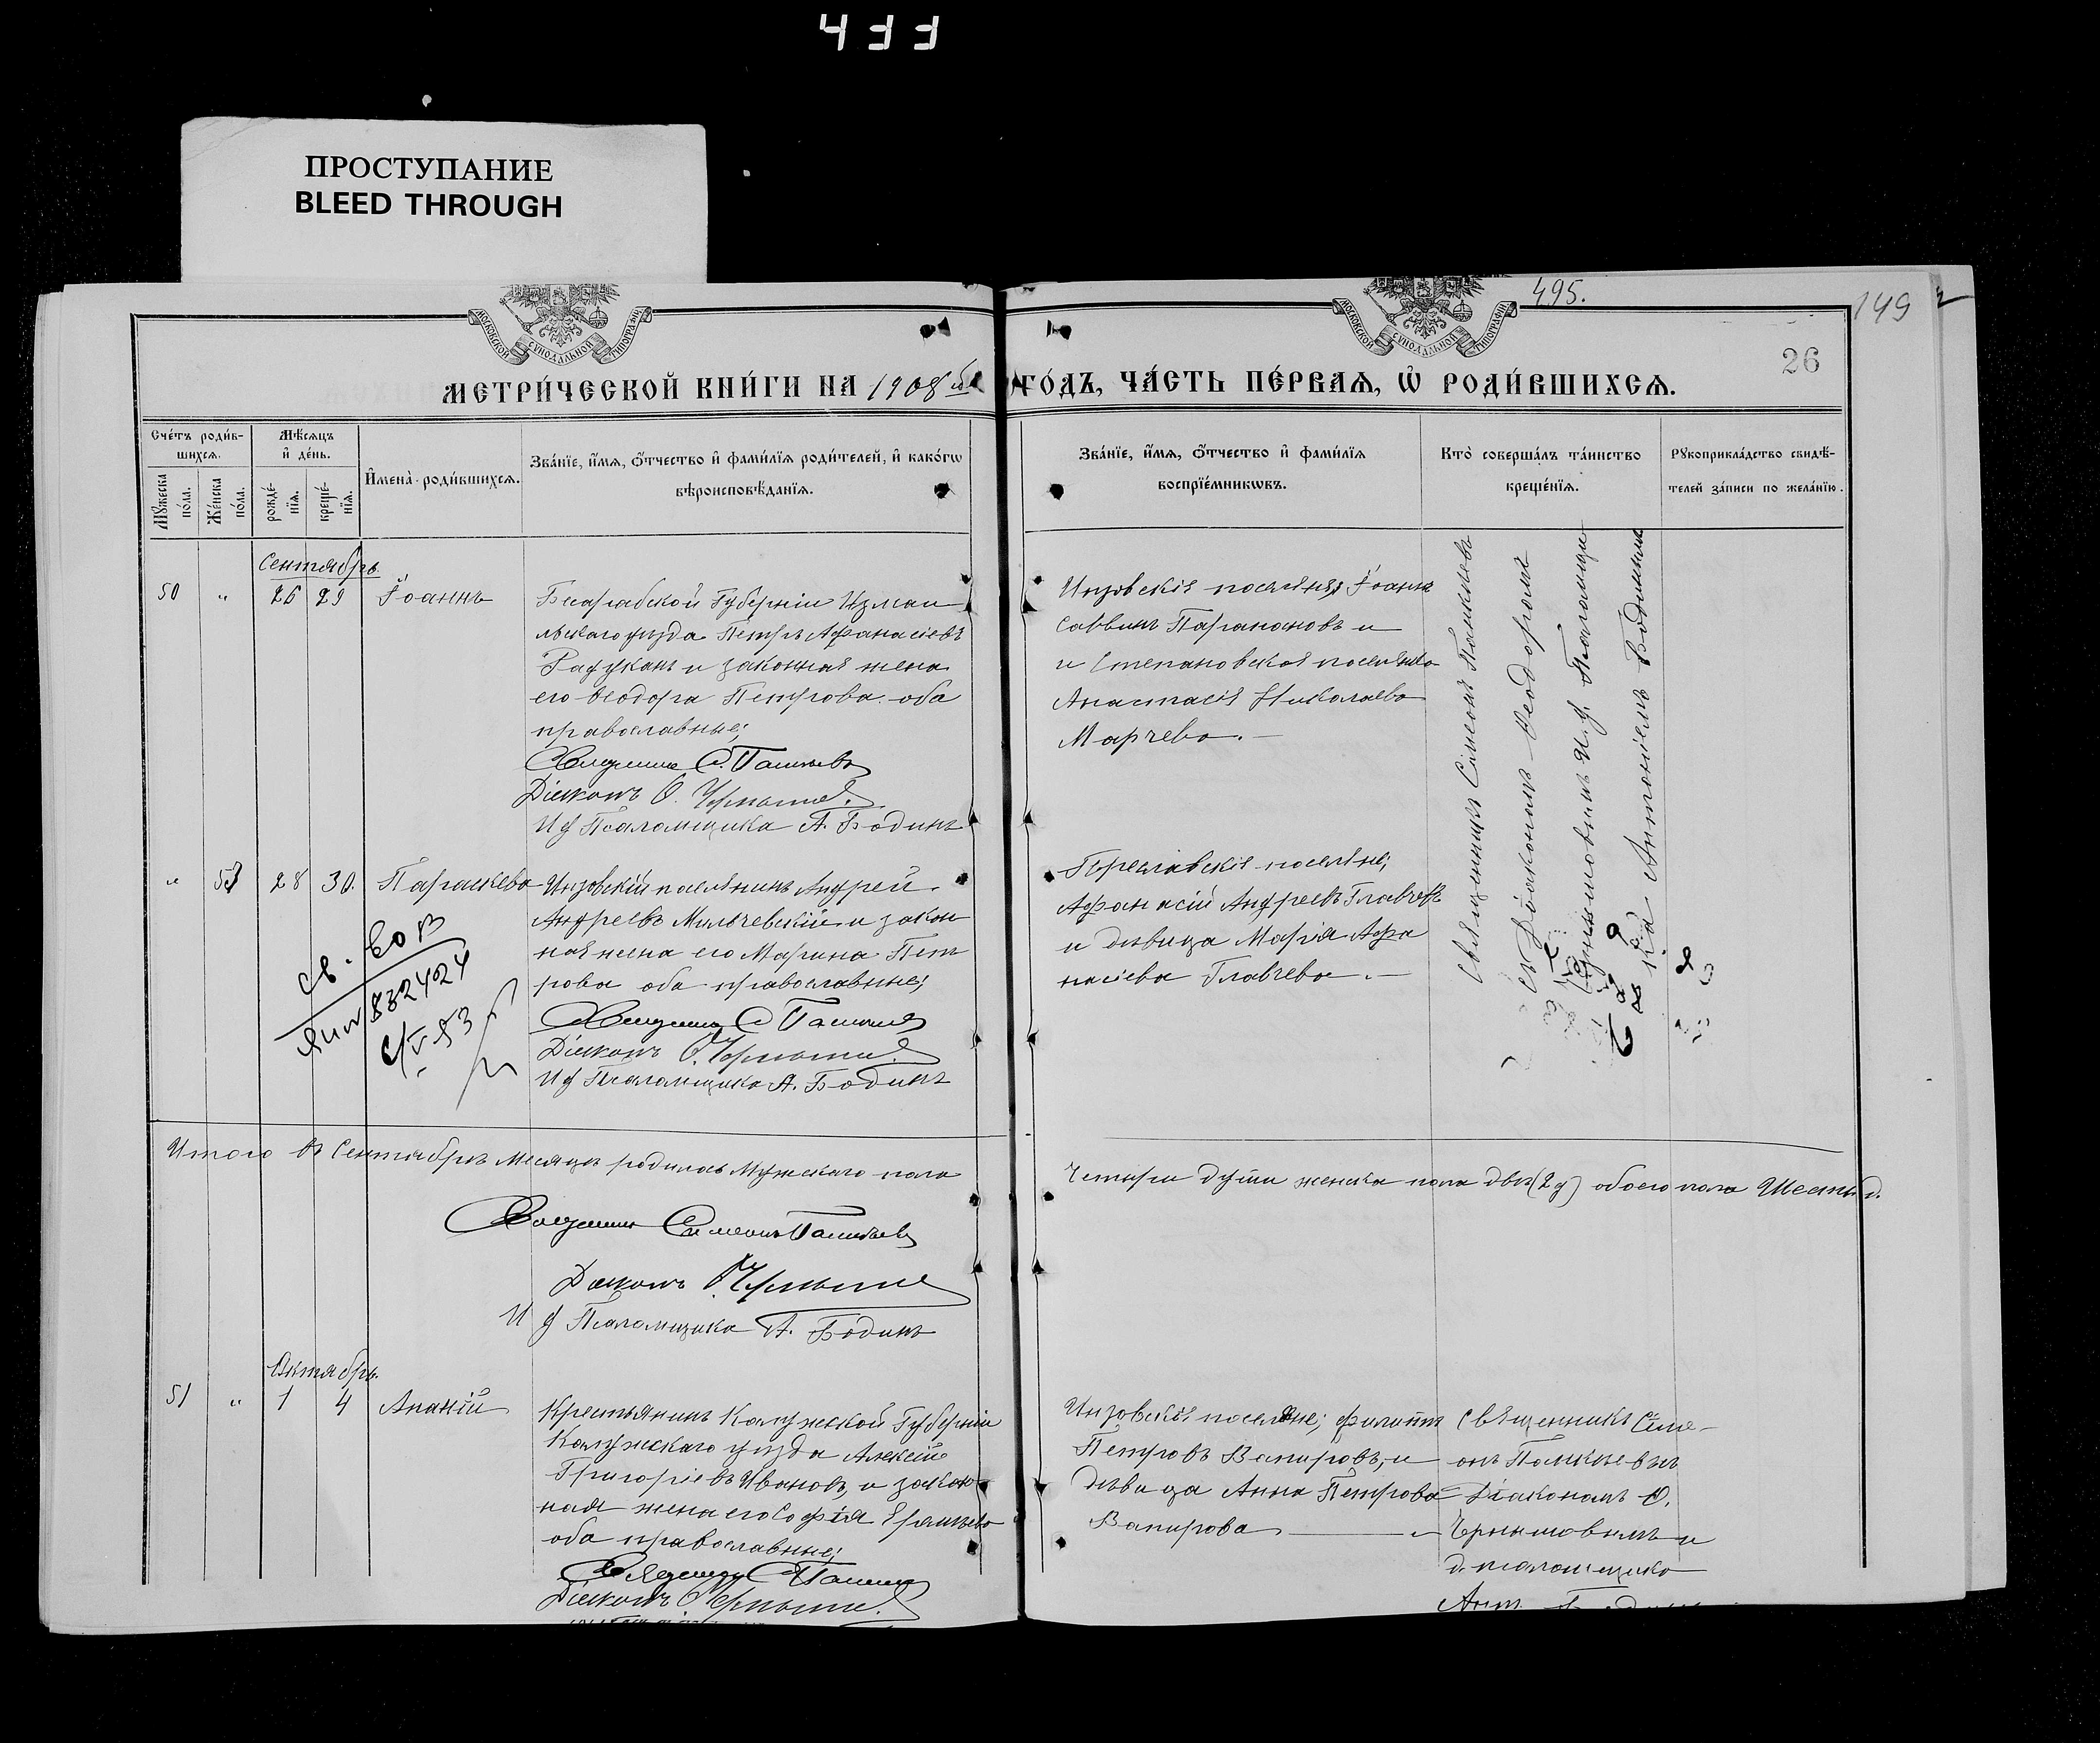 433
ПРОСТУПАНИЕ
BLEED THROUGH
МОСКОВСКОЙ СУНОДАЛЬНОЙ ТИПОГРАФІИ
МОСКОВСКОЙ СУНОДАЛЬНОЙ ТИПОГРАФІИ
495.
149
26
МЕТРИ́ЧЕСКОЙ КНИ́ГИ НА 1908 й
ГО́ДЪ, ЧА́СТЬ ПЕ́РВАѦ, Ѡ҆ РОДИ́ВШИХСѦ.
Сче́тъ роди́в-
шихсѧ.
Мꙋ́жеска по́ла.
Же́нска по́ла.
Мѣ́сѧцъ
и҆ де́нь.
рожде́-
нїѧ.
креще́-
нїѧ.
И҆мена̀ роди́вшихсѧ.
Зва́нїе, и҆́мѧ, ѻ҆́тчество и҆ фами́лїѧ роди́телей, и҆ како́гѡ
вѣроисповѣ́данїѧ.
Зва́нїе, и҆́мѧ, ѻ҆́тчество и҆ фами́лїѧ
воспрїе́мникѡвъ.
Кто̀ соверша́лъ та́инство
креще́нїѧ.
Рꙋкоприкла́дство свидѣ́-
телей за́писи по жела́нїю.
Сентябрь
50 " 26 29 Іоаннъ
Бессарабской Губерніи Измаи
льскаго уѣзда Петръ Афанасіевъ
Радуканъ и законная жена
его Ѳеодора Петрова оба
православные;
Священникъ С. Пашкѣевъ
Діаконъ Ѳ. Чернышев
И д Псаломщика А. Бодинъ
Инзовскіе поселяне Іоаннъ
Саввинъ Парапановъ и
и Степановская поселянка
Анастасія Николаева
Марчева. —
Священникъ Сімеонъ Пашкѣевъ
съ Діакономъ Ѳеодоромъ
Чернышовымъ и и.д. Псаломщи
ка Антоніемъ Бодинымъ
" 53 28 30. Параскева
Инзовскій поселянинъ Андрей
Андреевъ Мильчевскій и закон
ная жена его Марина Пет
рова оба православные;
Священникъ С Пашкѣевъ
Діаконъ Ѳ. Чернышев
И д Псаломщика А. Бодинъ
Переславскіе поселяне;
Афанасій Андреевъ Главчевъ
и дѣвица Марія Афа
насіева Главчева. —
832424
Итого въ Сентябрѣ мѣсяцѣ родилось Мужскаго пола
Четыри души женска пола двѣ (2 д) обоего пола Шесть д.
Священникъ Симеонъ Пашкѣевъ
Діаконъ Ѳ. Чернышев
И д Псаломщика А. Бодинъ
Октябрь.
51 " 1 4 Ананій
Крестьянинъ Калужской Губерніи
Калужскаго уѣзда Алексій
Григоріевъ Ивановъ, и закон
ная жена его Софія
оба православные;
Священникъ С Пашкѣевъ
Діаконъ Ѳ. Чернышев
Инзовскіе поселяне; Филиппъ
Петровъ Вапировъ, и
дѣвица Анна Петрова
Вапирова —
Священникъ Симе-
онъ Пашкѣевъ
Діакономъ Ѳ.
Чернышовымъ и
д. псаломщика
Ант. Бодин